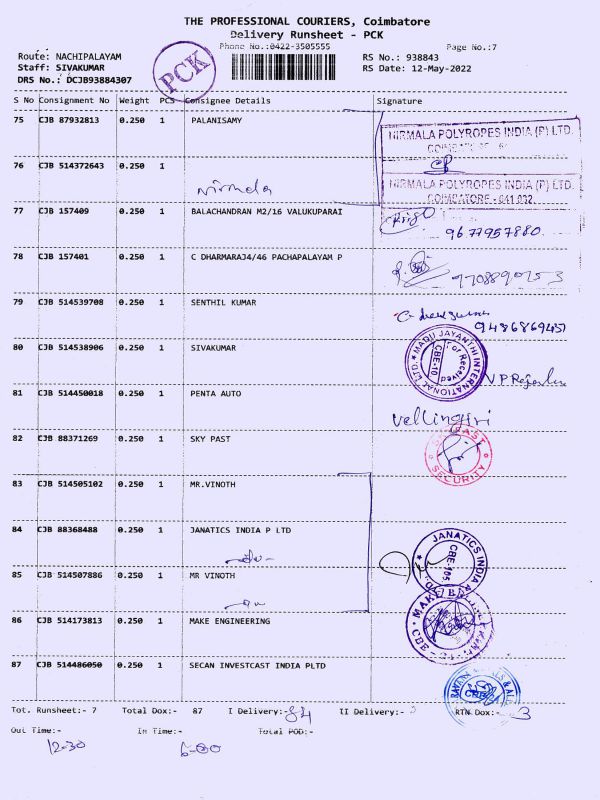 THE PROFESSIONAL COURIERS, Coimbatore
Delivery Runsheet - PCK
Phone No.:0422-3505555 Page No.:7
Route: NACHIPALAYAM RS No.: 938843
Staff: SIVAKUMAR RS Date: 12-May-2022
DRS No.: DCJB93884307
PCK
S No Consignment No Weight PCS Consignee Details Signature
75 CJB 87932813 0.250 1 PALANISAMY
NIRMALA POLYROPES INDIA (P) LTD.
76 CJB 514372643 0.250 1
Nirmala
NIRMALA POLYROPES INDIA (P) LTD.
COIMBATORE - 641 032.
77 CJB 157409 0.250 1 BALACHANDRAN M2/16 VALUKUPARAI
9677957880
78 CJB 157401 0.250 1 C DHARMARAJ4/46 PACHAPALAYAM P
9708890753
79 CJB 514539708 0.250 1 SENTHIL KUMAR
80 CJB 514538906 0.250 1 SIVAKUMAR
MADU JAYANTHI INTERNATIONAL LTD. For Received CBE-10
81 CJB 514450018 0.250 1 PENTA AUTO
Vellingiri
82 CJB 88371269 0.250 1 SKY PAST
SECURITY
83 CJB 514505102 0.250 1 MR.VINOTH
84 CJB 88368488 0.250 1 JANATICS INDIA P LTD
JANATICS INDIA CBE-105
85 CJB 514507886 0.250 1 MR VINOTH
86 CJB 514173813 0.250 1 MAKE ENGINEERING
MAKE CBE
87 CJB 514486050 0.250 1 SECAN INVESTCAST INDIA PLTD
Tot. Runsheet:- 7 Total Dox:- 87 I Delivery:-84 II Delivery:- RTN Dox:- 3
Out Time:- In Time:- Total POD:-
12-30 6-00